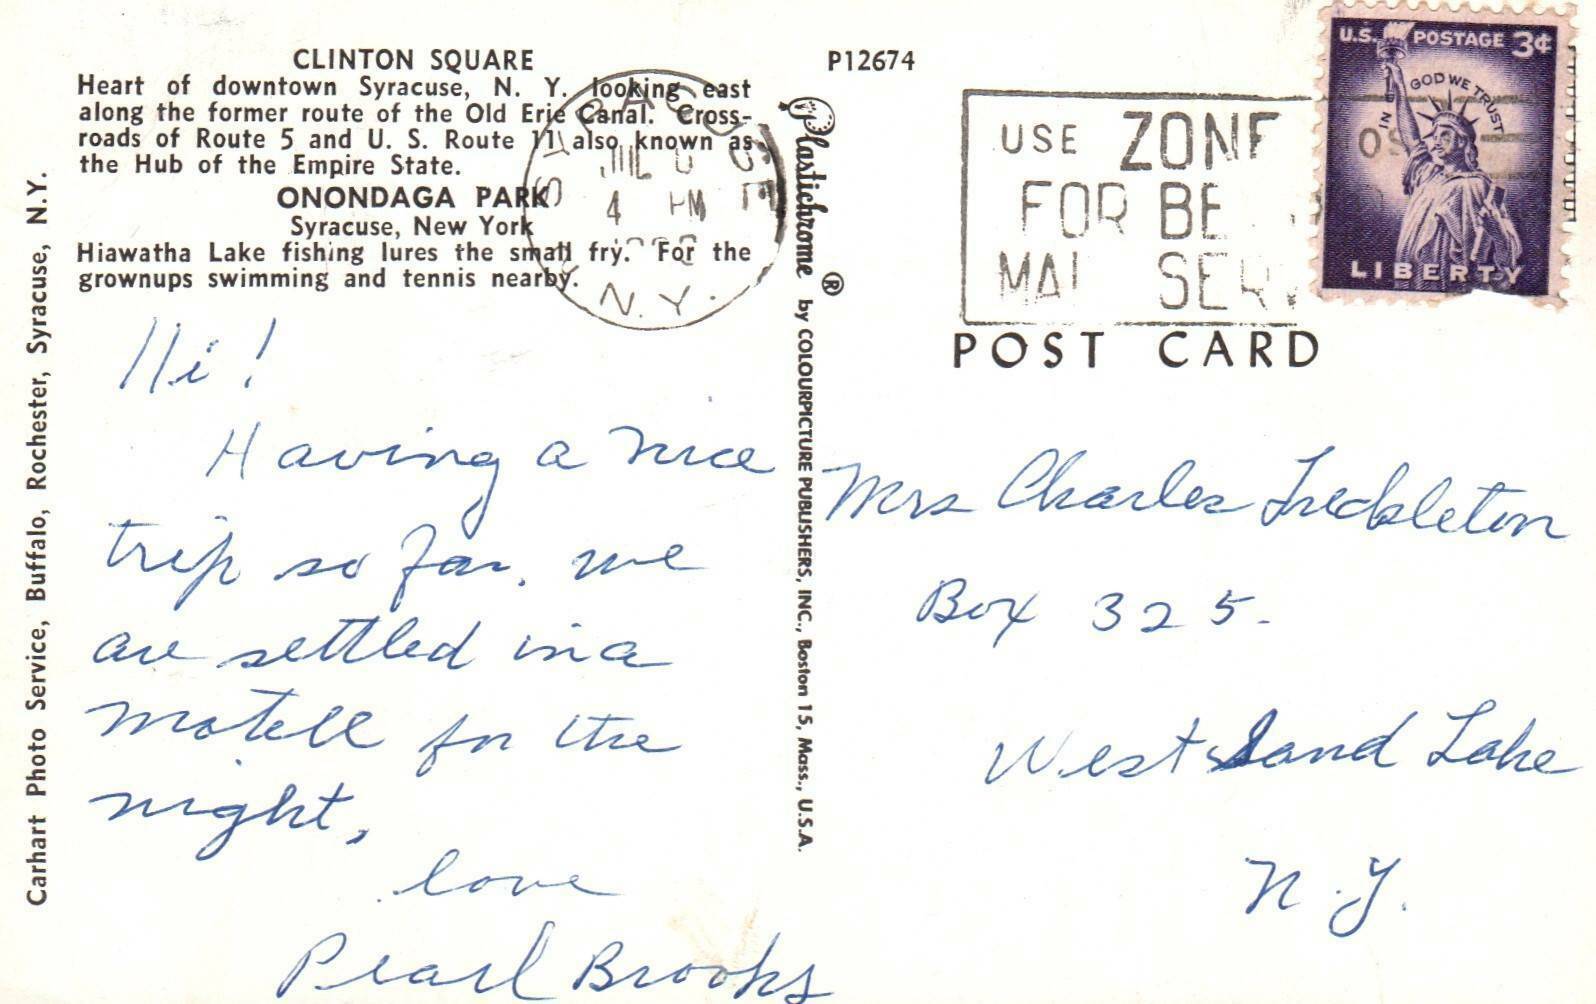 CLINTON SQUARE
Heart of downtown Syracuse, N. Y. looking east
along the former route of the Old Erie Canal. Cross-
roads of Route 5 and U. S. Route 11 also known as
the Hub of the Empire State.
ONONDAGA PARK
Syracuse, New York
Hiawatha Lake fishing lures the small fry. For the
grownups swimming and tennis nearby.
Carhart Photo Service, Buffalo, Rochester, Syracuse, N.Y.
Hi!
Having a nice
trip so far. we
are settled in a
motell for the
night,
love
Pearl Brooks
SYRACUSE
JUL
4 PM
N.Y.
Plastichrome ® by COLOURPICTURE PUBLISHERS, INC., Boston 15, Mass., U.S.A.
P12674
USE ZONE
FOR BE
MAI SERV
U.S. POSTAGE 3¢
IN GOD WE TRUST
LIBERTY
POST CARD
Mrs Charles Freckleton
Box 325.
West Sand Lake
N.Y.